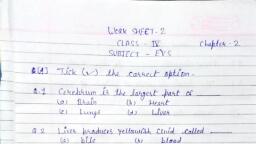 WORK SHEET-2
CLASS - IV Chapter-2
SUBJECT - EVS
Q(A) Tick (✓) the correct option.
Q.1 Cerebrum is the largest part of ______
(a) Brain (b) Heart
(c) Lungs (d) Liver
Q.2 Liver produces yellowish fluid called ______
(a) bile (b) blood